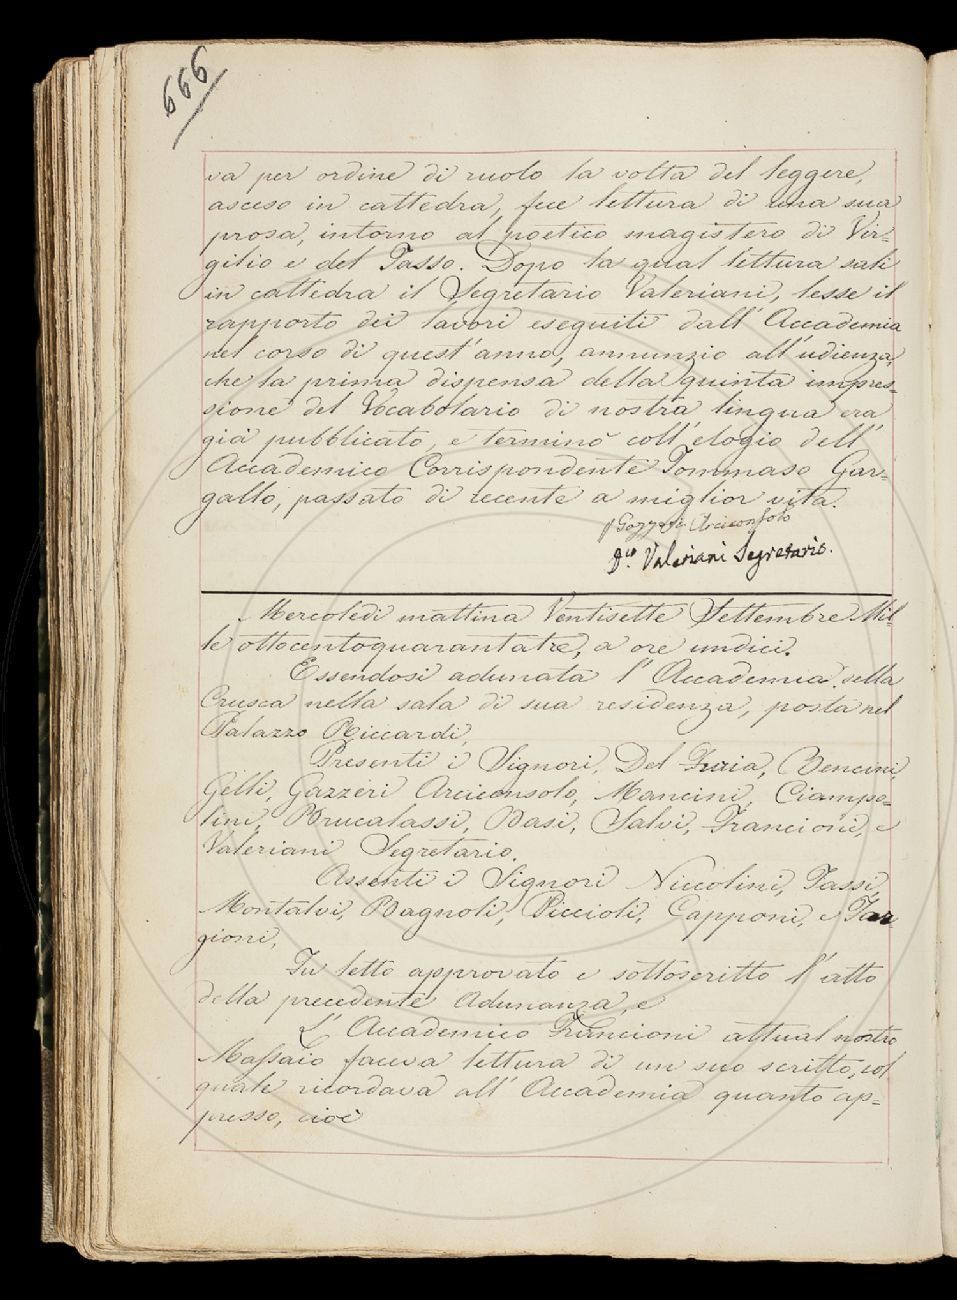 666
va per ordine di ruolo la volta del leggere,
asceso in cattedra, fece lettura di una sua
prosa, intorno al poetico magistero di Vir=
gilio e del Tasso. Dopo la qual lettura salì
in cattedra il Segretario Valeriani, lesse il
rapporto dei lavori eseguiti dall' Accademia
nel corso di quest'anno, annunziò all'udienza,
che la prima dispensa della quinta impres=
sione del Vocabolario di nostra lingua era
già pubblicato, e terminò coll'elogio dell'
Accademico Corrispondente Tommaso Gar=
gallo, passato di recente a miglior vita.
Gazzeri Arciconsolo
Valeriani Segretario.
Mercoledì mattina Ventisette Settembre Mil=
le ottocentoquarantatre, a ore undici.
Essendosi adunata l'Accademia della
Crusca nella sala di sua residenza, posta nel
Palazzo Riccardi,
Presenti i Signori, Del Furia, Bencini,
Gelli, Gazzeri Arciconsolo, Mancini, Ciampo=
lini, Brucalassi, Basi, Salvi, Francioni, e
Valeriani Segretario.
Assenti i Signori Niccolini, Tassi,
Montalvi, Bagnoli, Piccioli, Capponi, e Tar
gioni,
Fu letto approvato e sottoscritto l'atto
della precedente Adunanza, e
L'Accademico Francioni attual nostro
Massaio faceva lettura di un suo scritto, col
quale ricordava all'Accademia quanto ap=
presso, cioè